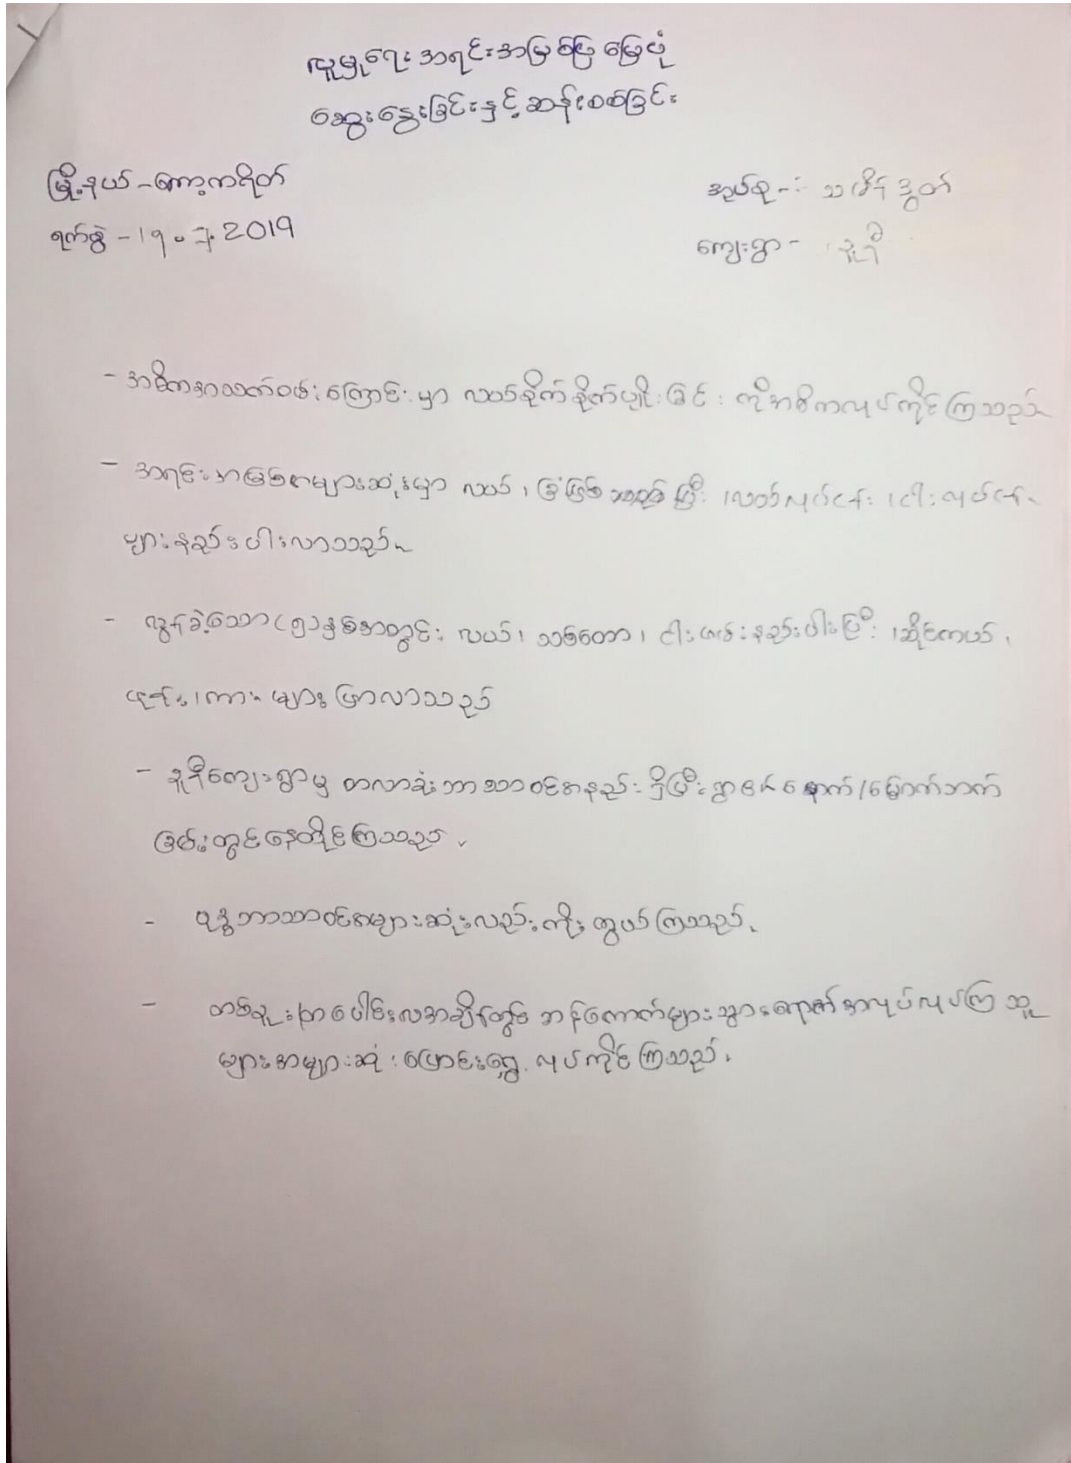 လူမှုရေးအရင်းအမြစ်ပြမြေပုံ
ဆွေးနွေးခြင်းနှင့်ဆန်းစစ်ခြင်း
မြို့နယ် - ကော့ကရိတ်
ရက်စွဲ - 19 . 7. 2019
အုပ်စု -
ကျေးရွာ -
- အဓိကအသက်ဝမ်းကြောင်းမှာ လယ်စိုက်စိုက်ပျိုးခြင်းကိုအဓိကလုပ်ကိုင်ကြသည်။
- အရင်းအမြစ်အများဆုံးမှာ လယ်၊ ခြံဖြစ်သည်ပြီး ၊လယ်လုပ်ငန်း ၊ငါးလုပ်ငန်း
များနည်းပါးလာသည်။
- လွန်ခဲ့သော(၅)နှစ်အတွင်း လယ်၊ သစ်တော၊ ငါးဖမ်းနည်းပါးပြီး ၊ဆိုင်ကယ်၊
ဖုန်း၊ကား များပြာလာသည်
- ကျေးရွာမှ တလာခုံဘာသာဝင်အနည်းရှိပြီး ရွာ၏အနောက်/မြောက်ဘက်
ခြမ်းတွင်နေထိုင်ကြသည်။
- ဗုဒ္ဓဘာသာဝင်အများဆုံးလည်းကိုးကွယ်ကြသည်။
- တစ်ဦး အပေါင်းလအချိန်တွင် ဘန်ကောက်များသွားရောက်အလုပ်လုပ်ကြသူ
များအများဆုံးပြောင်းရွှေ့လုပ်ကိုင်ကြသည်။